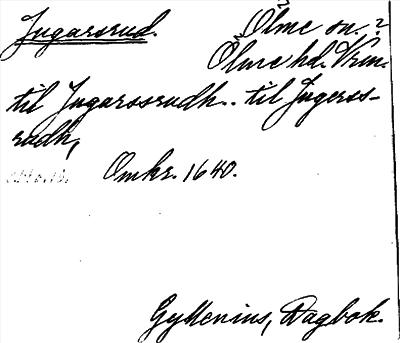 Jngarsrud. Ölme sn.?
Ölme hd. Vrm.
til Jngarssrudh.. til Jngerss-
rudh,
Omkr. 1640.
Gyllenius, Dagbok.